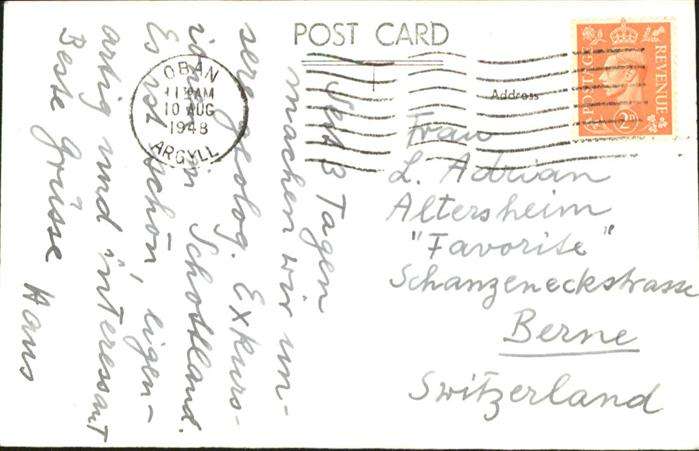 POST CARD
Address
OBAN
11 AM
10 AUG
1948
ARGYLL
POSTAGE
REVENUE
2D
Seit 3 Tagen
machen wir un-
sere geolog. Exkurs-
ion in Schottland.
Es ist schön, eigen-
artig und interessant
Beste Grüsse Hans
Frau
L. Adrian
Altersheim
"Favorite"
Schanzeneckstrasse
Berne
Switzerland